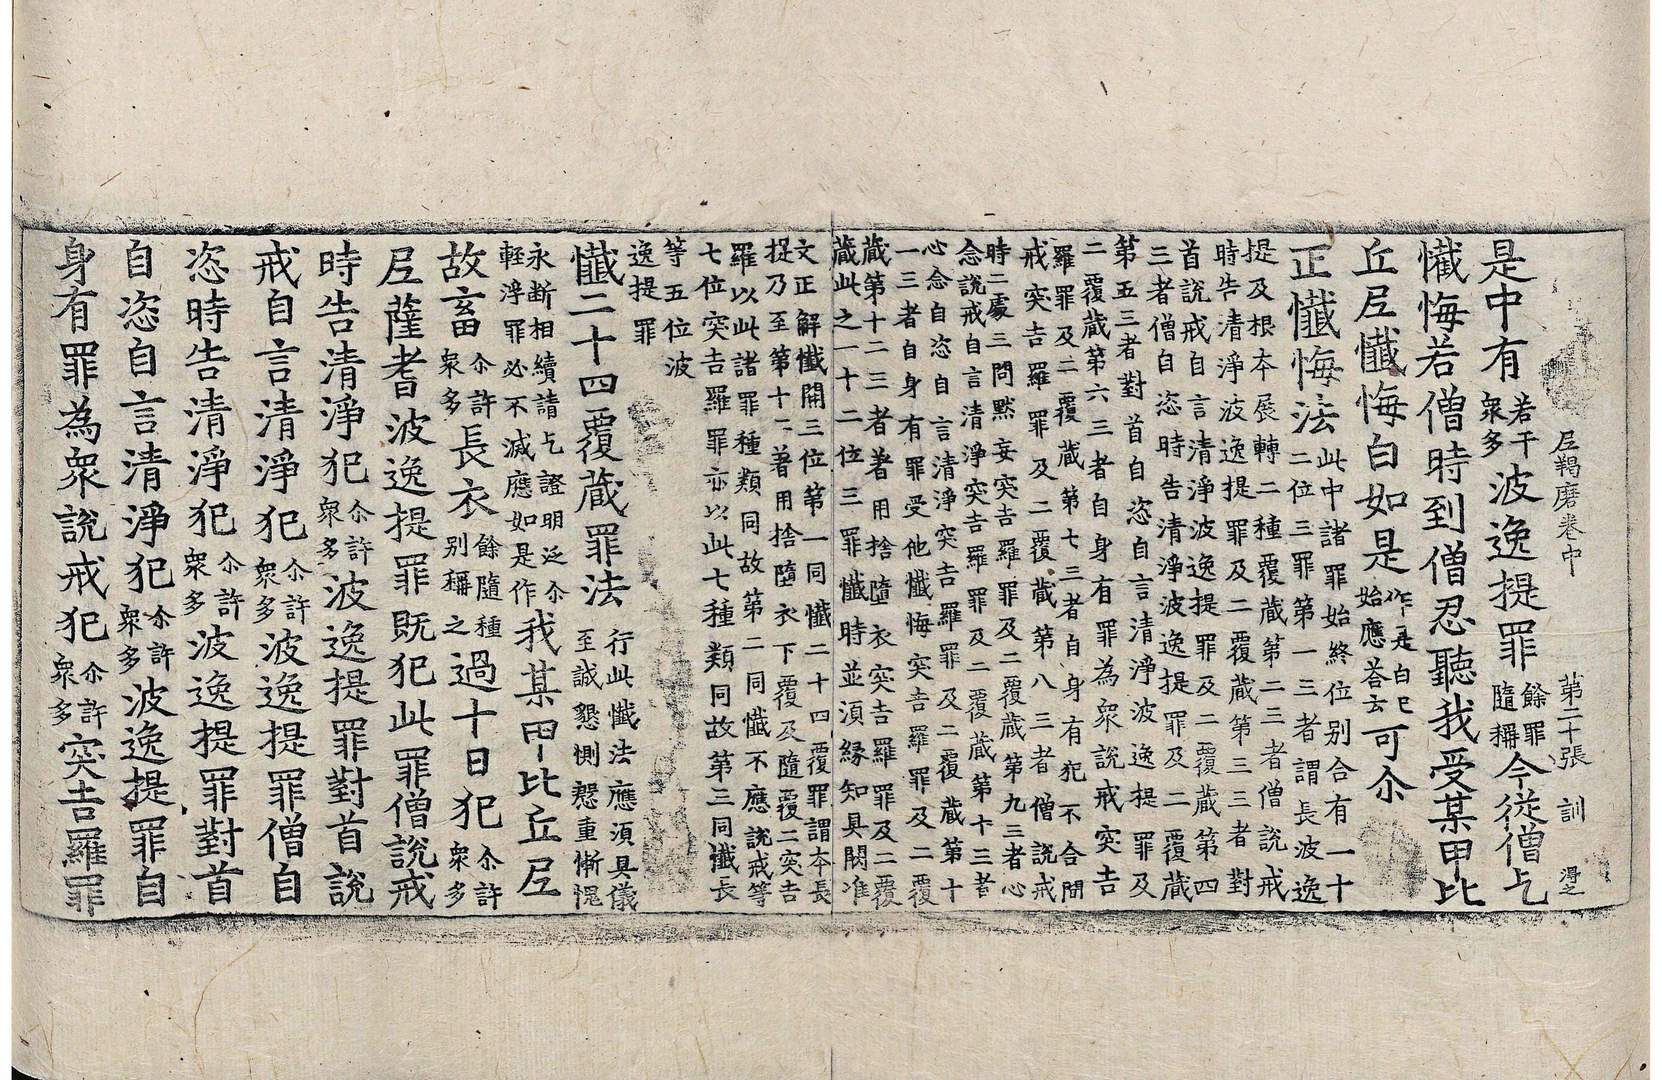 尼羯磨卷中 第二十張 訓 淂之
是中有若干衆多波逸提罪餘罪隨稱今從僧乞
懺悔若僧時到僧忍聽我受某甲比
丘尼懺悔白如是作是白已始應荅云可尒
正懺悔法此中諸罪始終位别合有一十二位三罪第一三者謂長波逸
提及根本展轉二種覆藏第二三者僧說戒
時告清淨波逸提罪及二覆藏第三三者對
首說戒自言清淨波逸提罪及二覆藏第四
三者僧自恣時告清淨波逸提罪及二覆藏
第五三者對首自恣自言清淨波逸提罪及
二覆藏第六三者自身有罪為衆說戒突吉
羅罪及二覆藏第七三者自身有犯不合間
戒突吉羅罪及二覆藏第八三者僧說戒
時二處三問黙妄突吉羅罪及二覆藏第九三者心
念說戒自言清淨突吉羅罪及二覆藏第十三者
心念自恣自言清淨突吉羅罪及二覆藏第十
一三者自身有罪受他懺悔突吉羅罪及二覆
藏第十二三者著用捨墮衣突吉羅罪及二覆
藏此之一十二位三罪懺時並須緣知具閱准
文正解懺開三位第一同懺二十四覆罪謂本長
提乃至第十二著用捨墮衣下覆及隨覆二突吉
羅以此諸罪種類同故第二同懺不應說戒等
七位突吉羅罪亦以此七種類同故第三同懺長
等五位波
逸提罪
懺二十四覆藏罪法行此懺法應須具儀至誠懇惻慇重慚愧
永断相續請乞證明迄尒輕浮罪必不滅應如是作我某甲比丘尼
故畜尒許衆多長衣餘隨種别稱之過十日犯尒許衆多
尼薩耆波逸提罪既犯此罪僧說戒
時告清淨犯尒許衆多波逸提罪對首說
戒自言清淨犯尒許衆多波逸提罪僧自
恣時告清淨犯尒許衆多波逸提罪對首
自恣自言清淨犯尒許衆多波逸提罪自
身有罪為衆說戒犯尒許衆多突吉羅罪